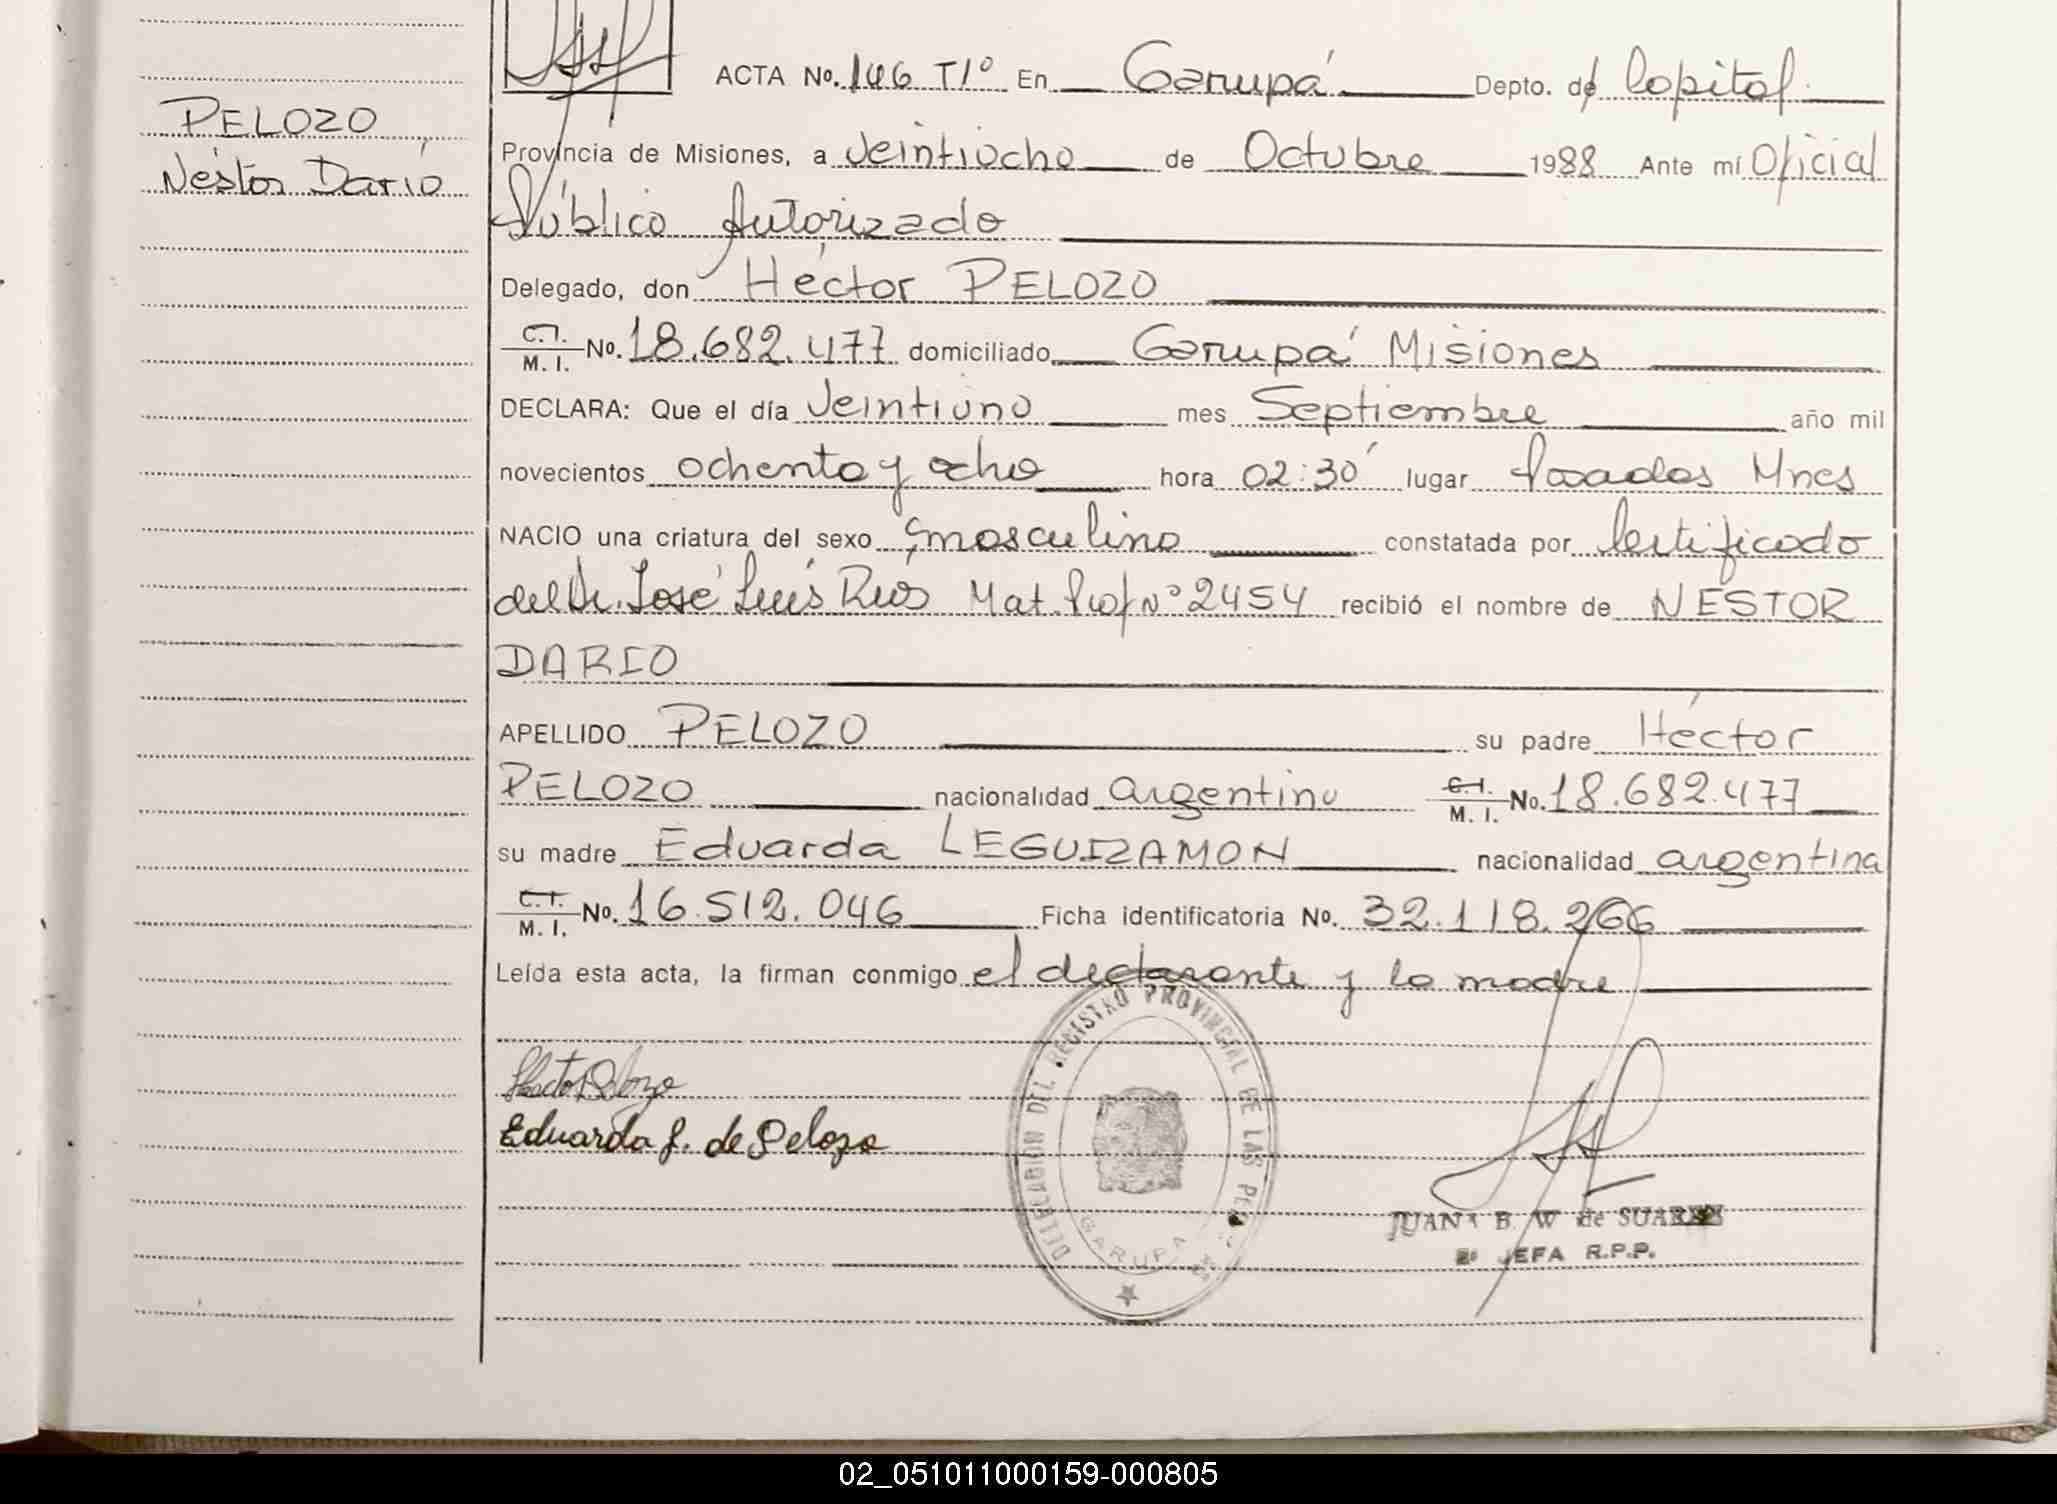 PELOZO
Néstor Darío
ACTA No. 146 T1º En Garupá Depto. de Capital.
Provincia de Misiones, a veintiocho de Octubre 1988 Ante mí Oficial
Público Autorizado
Delegado, don Héctor PELOZO
C.I. M. I. No. 18.682.477 domiciliado Garupá Misiones
DECLARA: Que el día veintiuno mes Septiembre año mil
novecientos ochenta y ocho hora 02:30 lugar Posadas Mnes
NACIO una criatura del sexo masculino constatada por Certificado
del Dr. José Luís Rios Mat. Prof Nº 2454 recibió el nombre de NESTOR
DARIO
APELLIDO PELOZO su padre Héctor
PELOZO nacionalidad argentino C.I. M. I. No. 18.682.477
su madre Eduarda LEGUIZAMON nacionalidad argentina
C.I. M. I. No. 16.512.046 Ficha identificatoria No. 32.118.266
Leída esta acta, la firman conmigo el declarante y la madre
Hector Pelozo
Eduarda L. de Pelozo
DELEGACION DEL REGISTRO PROVINCIAL DE LAS
GARUPA
JUANA B. W de SUAREZ
JEFA R.P.P.
02_051011000159-000805